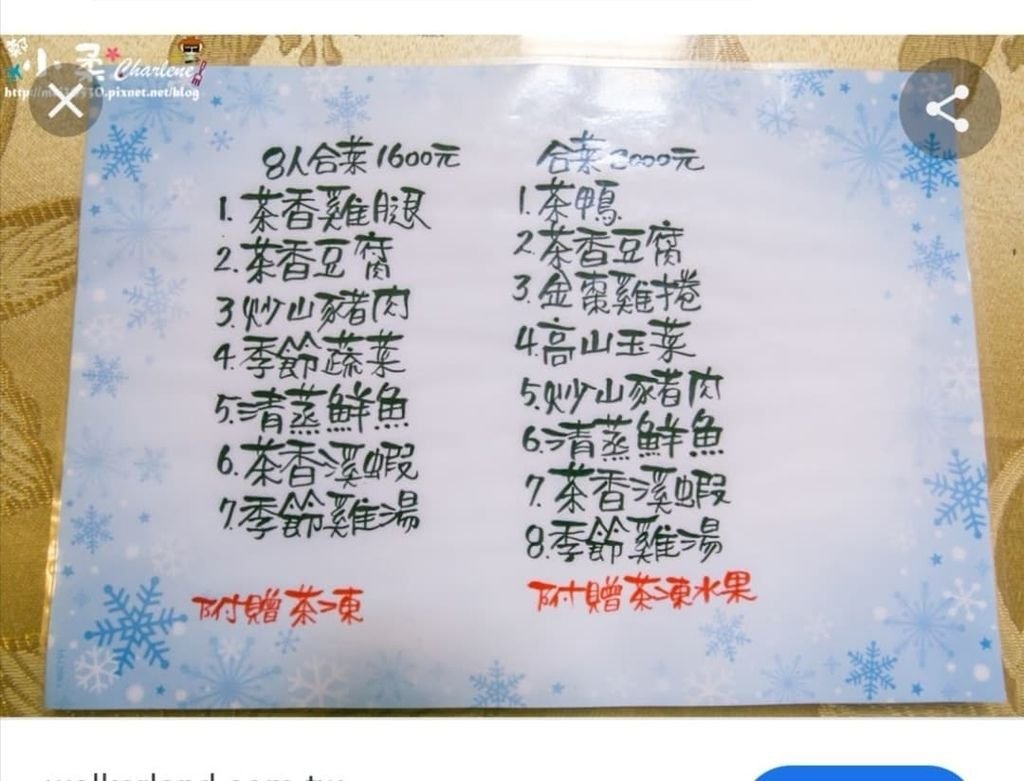 小柔
Charlene
8人合菜1600元
1.茶香雞腿
2.茶香豆腐
3.炒山豬肉
4.季節蔬菜
5.清蒸鮮魚
6.茶香溪蝦
7.季節雞湯
附贈茶凍
合菜2000元
1.茶鴨
2.茶香豆腐
3.金棗雞捲
4.高山玉菜
5.炒山豬肉
6.清蒸鮮魚
7.茶香溪蝦
8.季節雞湯
附贈茶凍水果